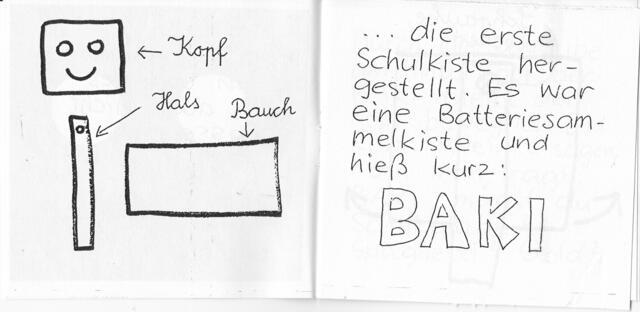 Kopf
Hals
Bauch
... die erste
Schulkiste her-
gestellt. Es war
eine Batteriesam-
melkiste und
hieß kurz:
BAKI